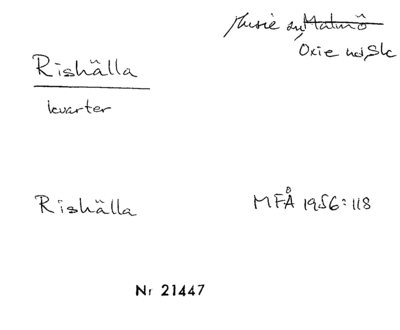 Husie sn, Malmö
Oxie hd, Sk
Rishälla
kvarter
Rishälla MFÅ 1956:118
Nr 21447